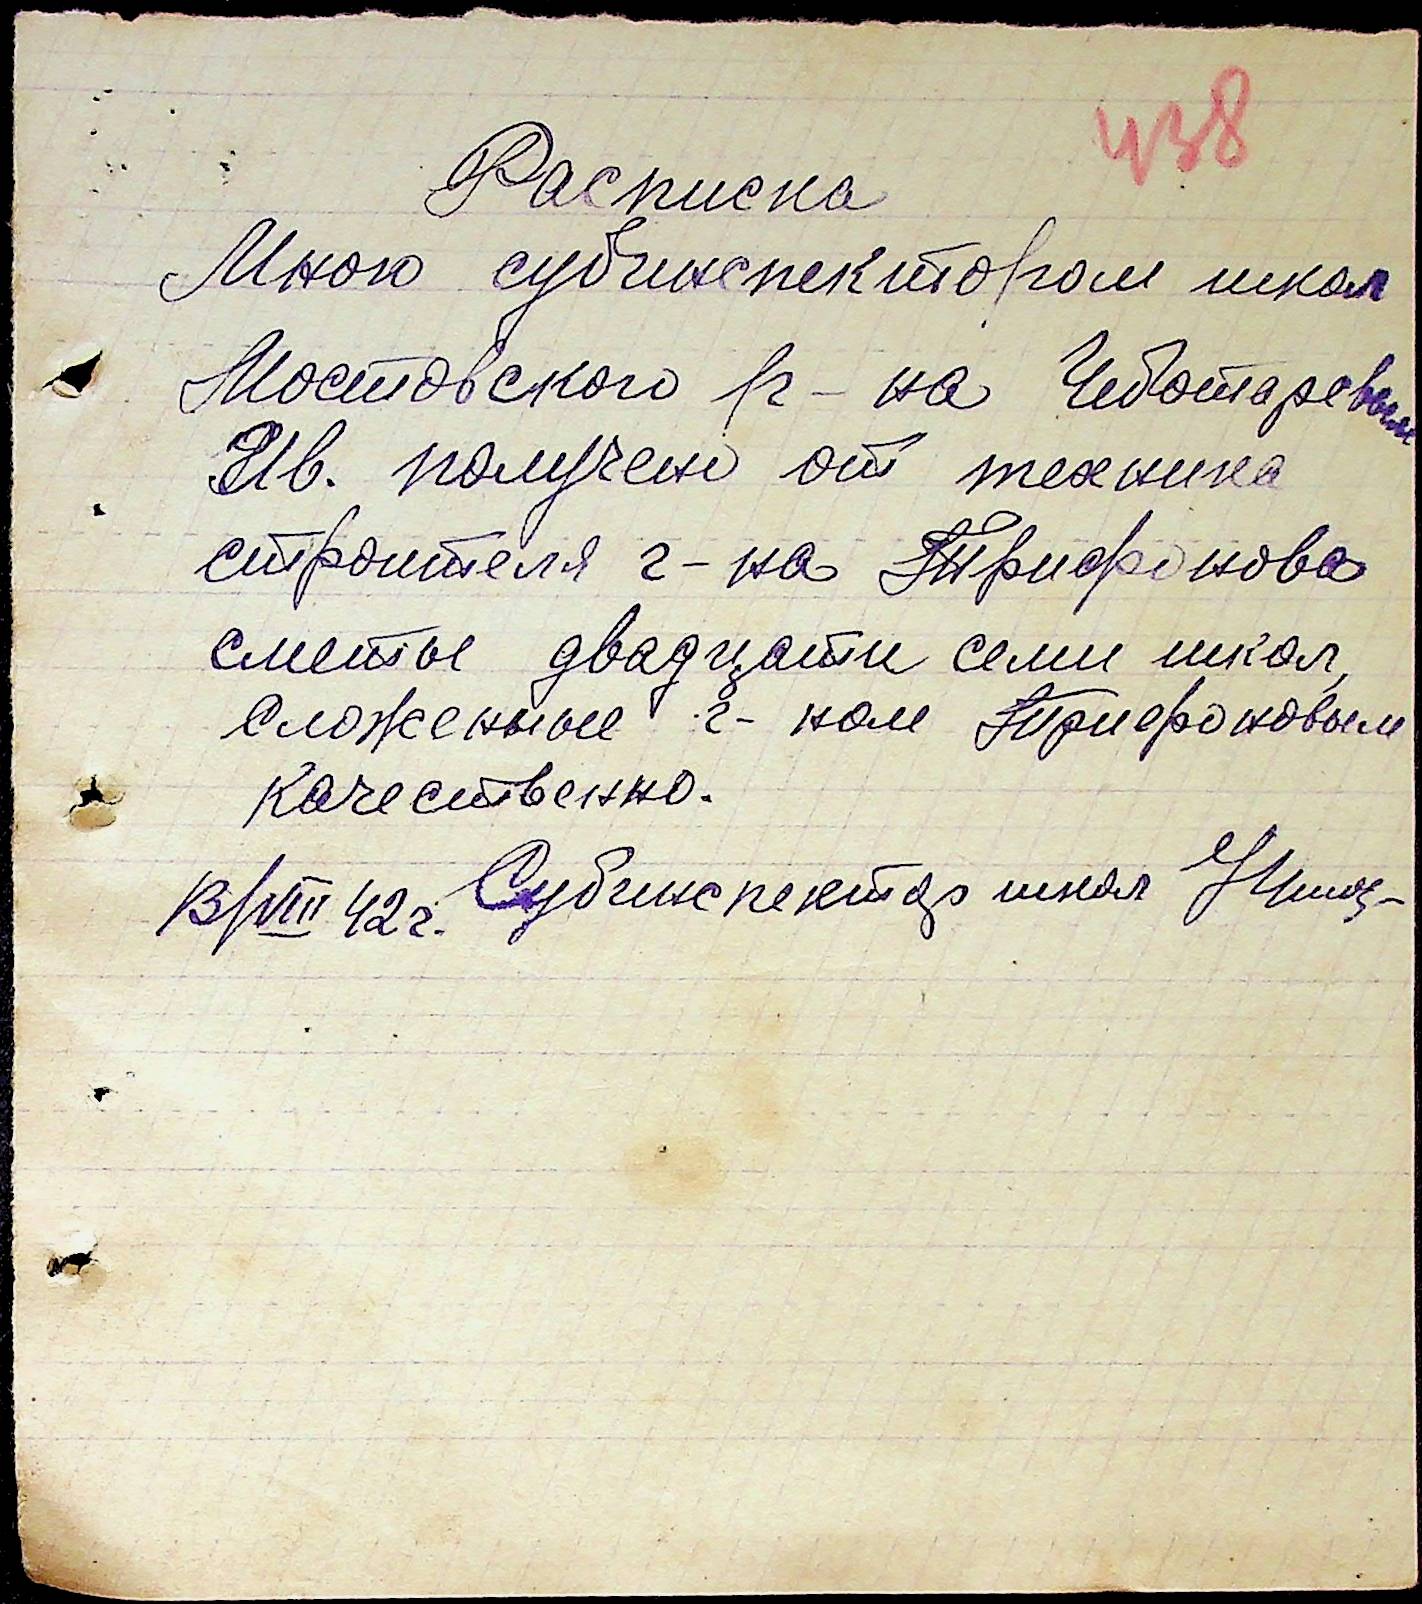 438
Расписка
Мною субинспектором школ
Мостовского р-на Чеботаревым
Ив. получено от техника
строителя г-на Трифонова
сметы двадцати семи школ,
сложеные г-ном Трифоновым
качественно.
13/VIII 42 г. Субинспектор школ